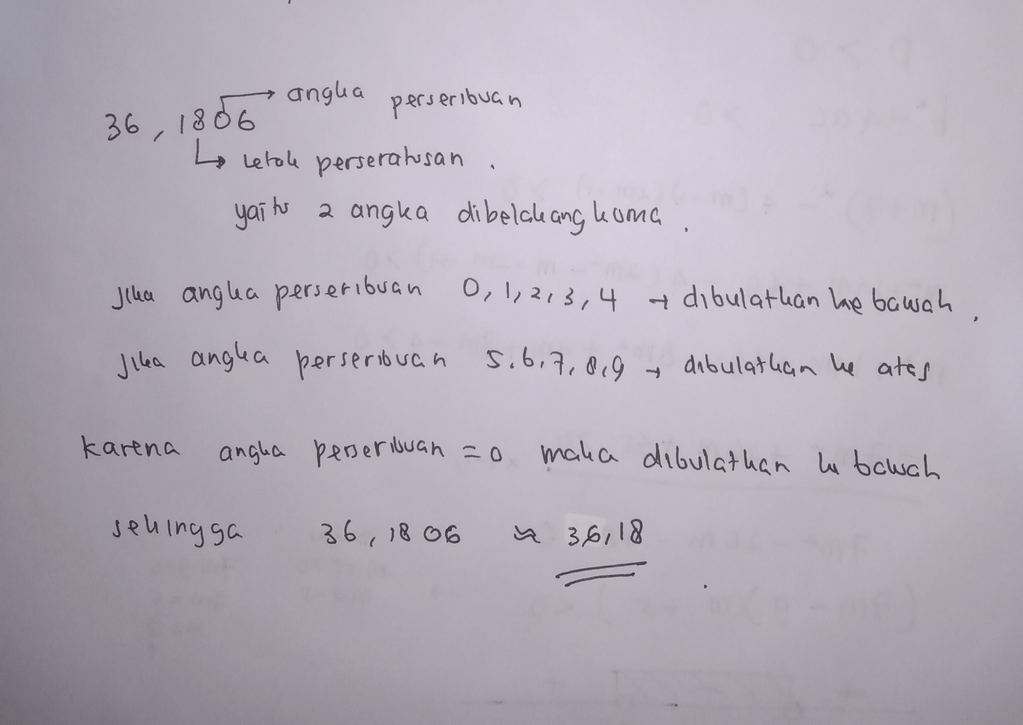 angka perseribuan
36,1806
letak perseratusan.
yaitu 2 angka dibelakang koma.
Jika angka perseribuan 0,1,2,3,4 → dibulatkan ke bawah.
Jika angka perseribuan 5,6,7,8,9 → dibulatkan ke atas
karena angka perseribuan = 0 maka dibulatkan ke bawah
sehingga 36,1806 ≈ 36,18